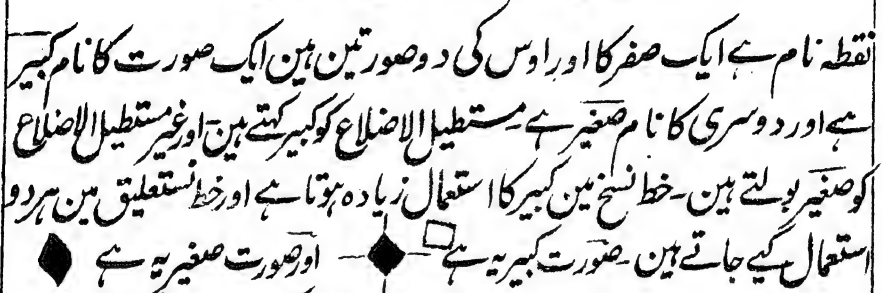 نقطہ نام ہے ایک صفر کا اور اوس کی دو صورتین ہین ایک صورت کا نام کبیر
ہے اور دوسری کا نام صغیر ہے۔ مستطیل الاضلاع کو کبیر کہتے ہین۔ اور غیر مستطیل الاضلاع
کو صغیر بولتے ہین۔ خط نسخ مین کبیر کا استعمال زیادہ ہوتا ہے اور خط نستعلیق مین ہر دو
استعمال کیے جاتے ہین۔ صورت کبیر یہ ہے ▭ — ◆ — اور صورت صغیر یہ ہے ◆